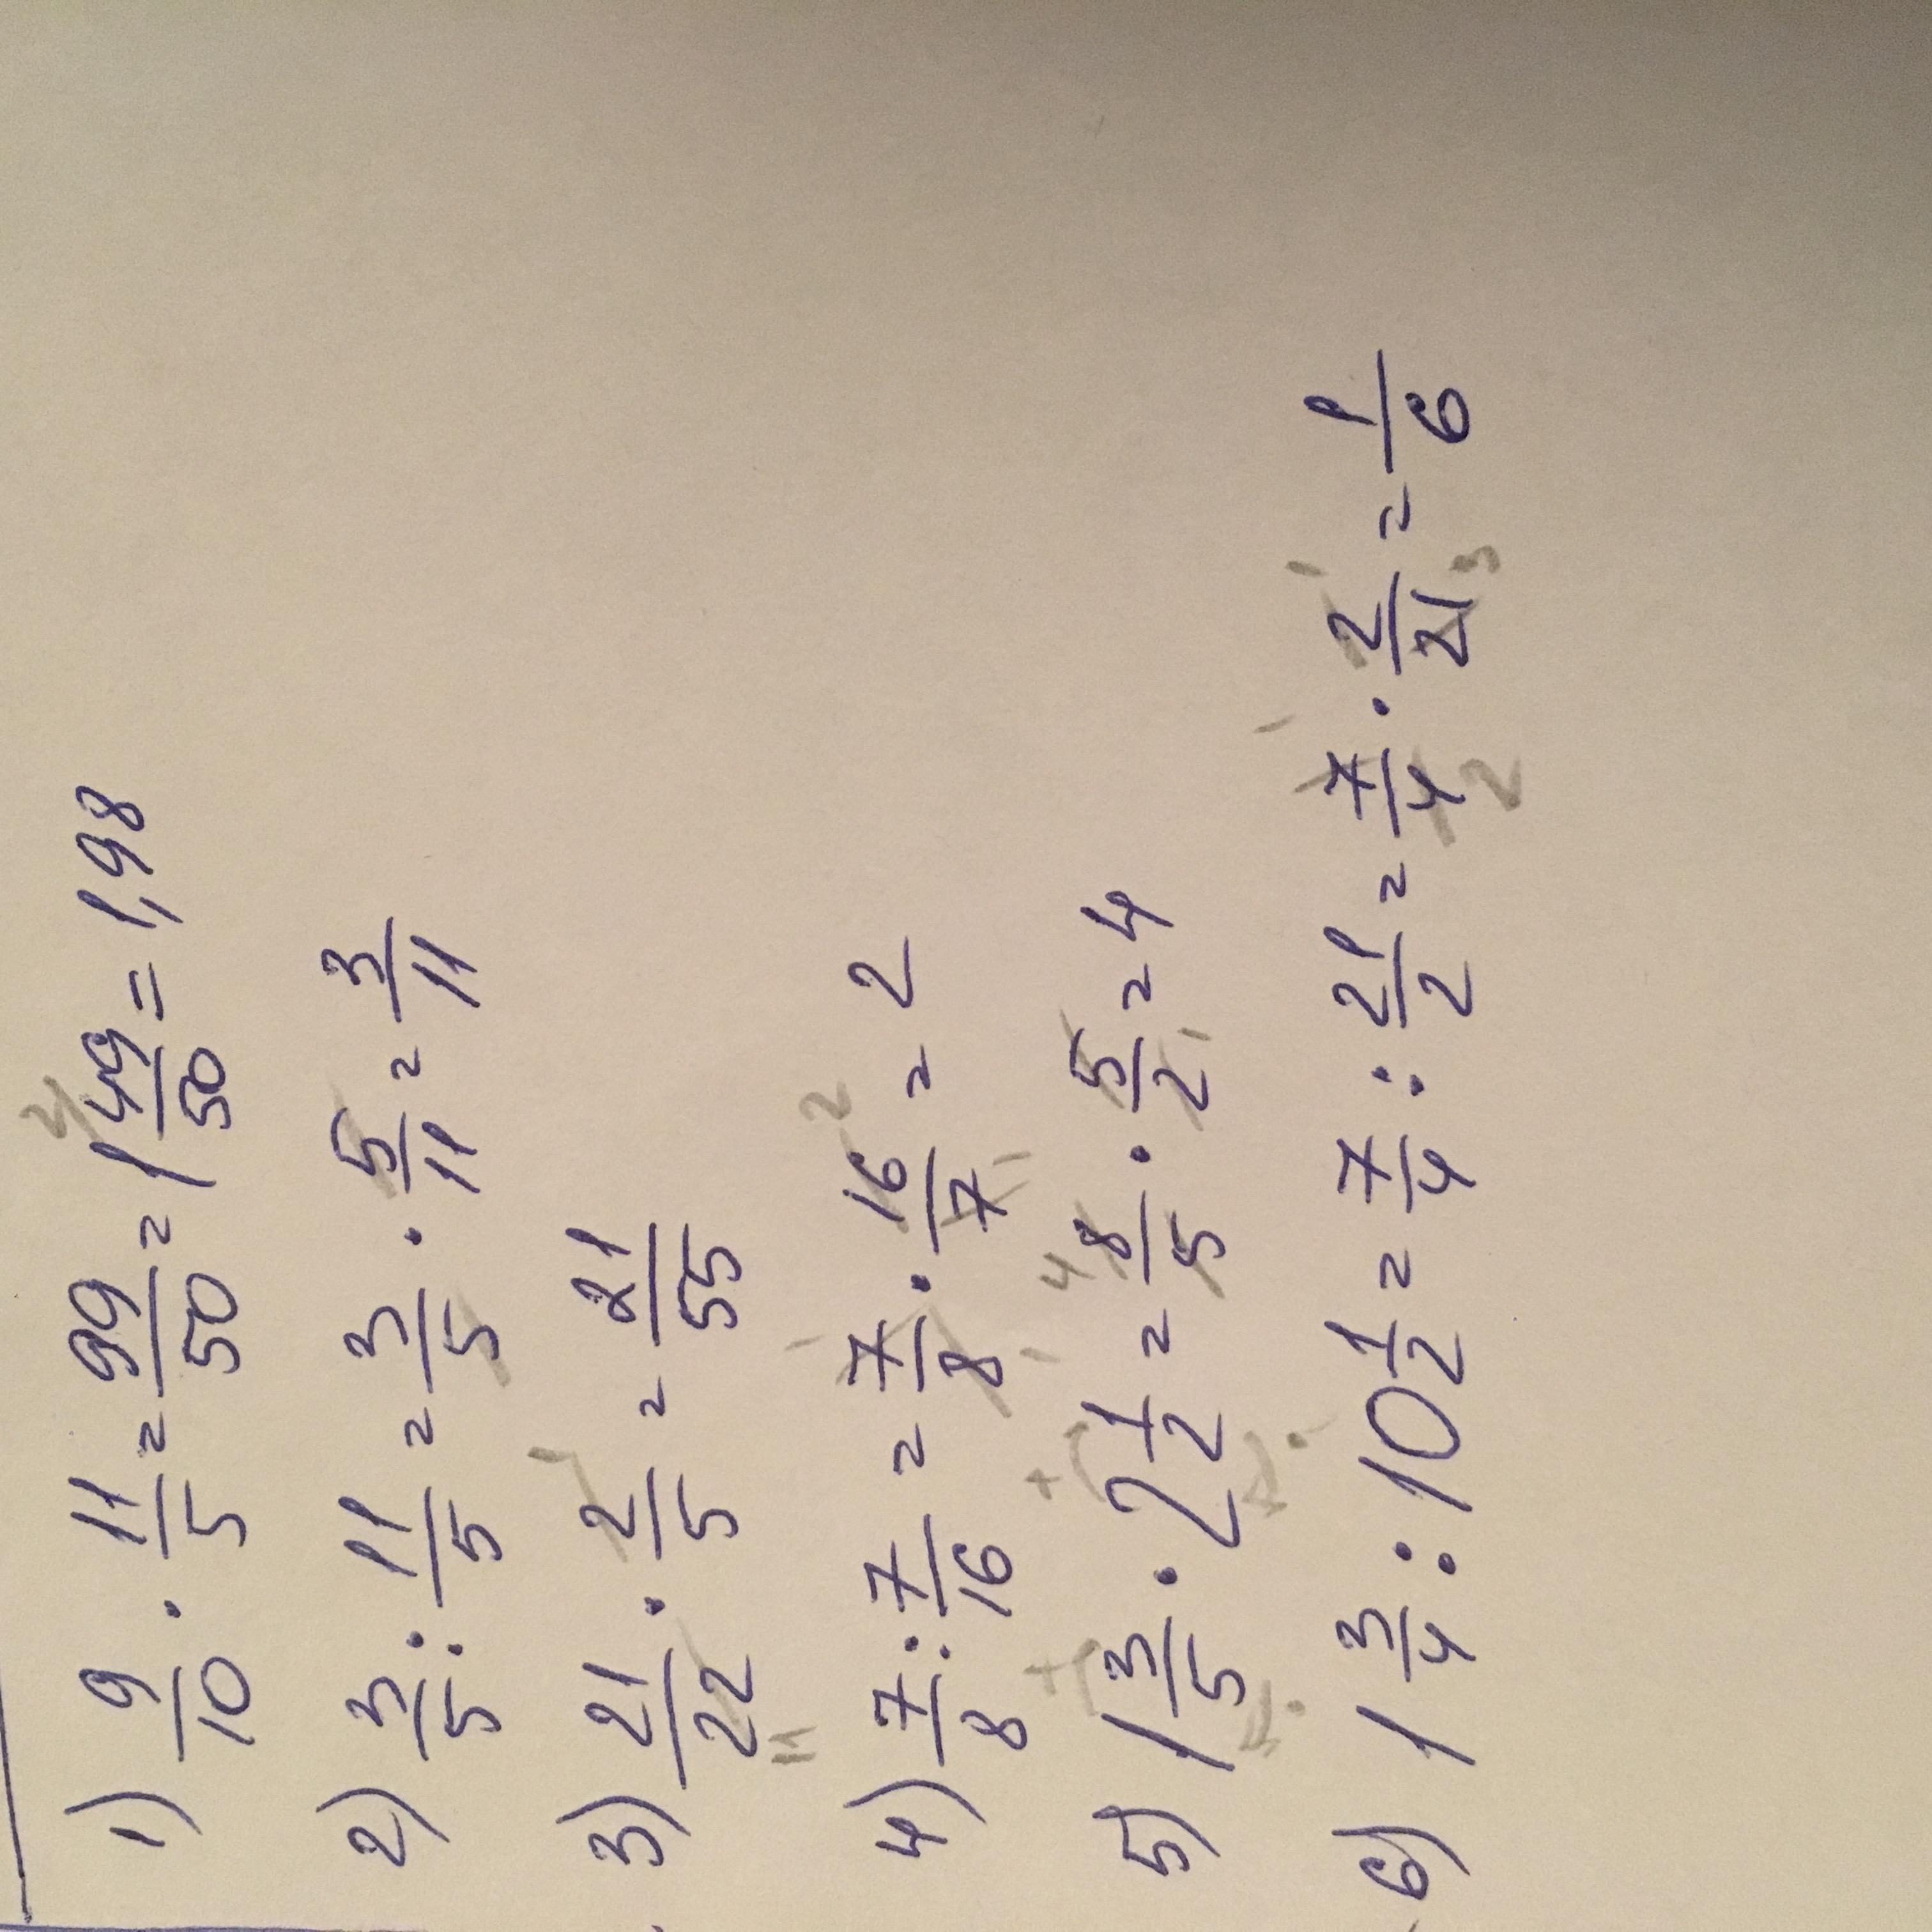 1) 9/10 · 11/5 = 99/50 = 1 49/50 = 1,98
2) 3/5 : 11/5 = 3/5 · 5/11 = 3/11
3) 21/22 · 2/5 = 21/55
4) 7/8 : 7/16 = 7/8 · 16/7 = 2
5) 1 3/5 · 2 1/2 = 8/5 · 5/2 = 4
6) 1 3/4 : 10 1/2 = 7/4 : 21/2 = 7/4 · 2/21 = 1/6